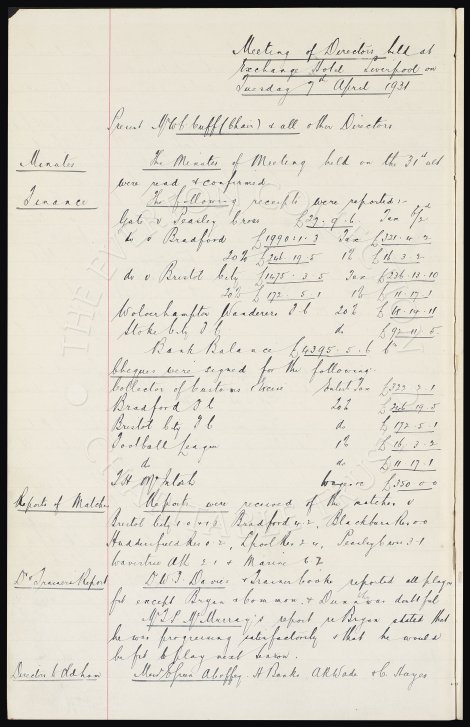 Meeting of Directors, held at
Exchange Hotel Liverpool on
Tuesday 7th April 1931
Present Mr W C Cuff (Chair) & all other Directors
Minutes
The Minutes of Meeting held on the 31st ult
were read & confirmed.
Finance
The following receipts were reported:-
Gate v Peasley Cross £27.9.6 Tax 5/2d
do v Bradford £1990.1.3 Tax £321.4.2
20% £246.19.5 1% £16.3.2
do v Bristol City £1475.3.5 Tax £236.13.10
20% £172.5.1 1% £11.17.1
Wolverhampton Wanderers F.C. 20%
Stoke City F.C. do £92.11.5
Bank Balance £4395.5.6 Cr
Cheques were signed for the following
Collector of Customs & Excise Entert Tax
Bradford F.C. 20% £246.19.5
Bristol City F.C. do £172.5.1
Football League 1% £16.3.2
do do £11.17.1
T.H. McIntosh Wages &c £350.0.0
Reports of Matches
Reports were received of the matches v
Bristol City Bradford 4.2, Blackburn Res 0.0
Huddersfield Res 0.2, L'pool Res 2.4, Peasley Cross 3.1
Wavertree Ath 2.1 & Marine 6.2
Dr & Trainers Report
Dr W.J. Davies & Trainer Cooke reported all players
fit except Bryan & Common & Dunn was doubtful
McMurray's report re Bryan stated that
he was progressing satisfactorily & that he would
be fit to play next season.
Directors to Oldham
Messrs Green A Coffey, H Banks A R Wade & C. Hayes